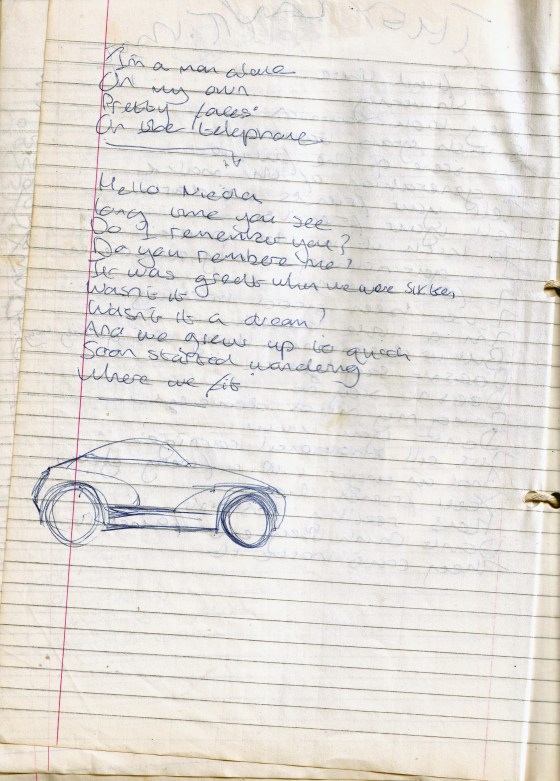 I'm a man alone
On my own
Pretty faces
On the telephone
Hello Nicola
Long time you see
Do I remember you?
Do you rembere me?
It was great when we were sixteen
Wasn't it
Wasn't it a dream?
And we grew up to quick
Soon started wandering
Where we fit